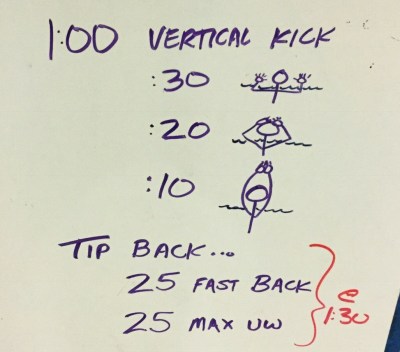 1:00 VERTICAL KICK
:30
:20
:10
TIP BACK...
25 FAST BACK
25 MAX UW
@
1:30